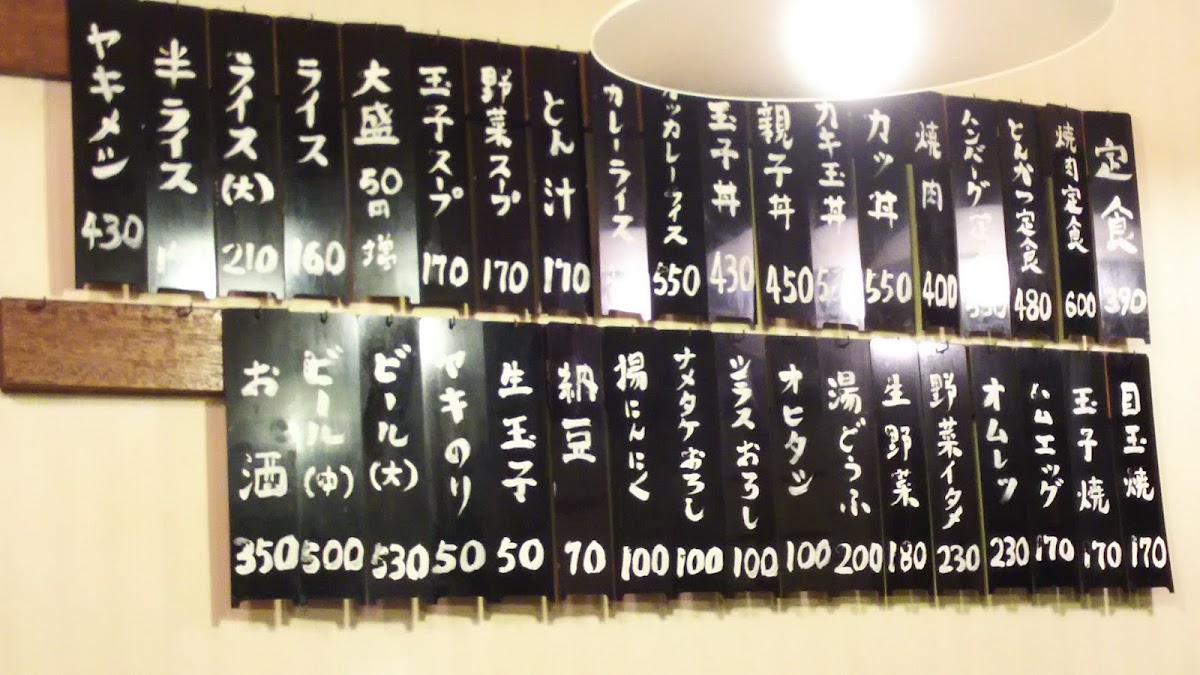 定食 390
焼肉定食 600
とんかつ定食 480
ハンバーグ
焼肉 400
カツ丼 550
カキ玉丼
親子丼 450
玉子丼 430
カツカレーライス 550
カレーライス
とん汁 170
野菜スープ 170
玉子スープ 170
大盛 50円増
ライス 160
ライス(大) 210
半ライス
ヤキメシ 430
目玉焼 170
玉子焼 170
ハムエッグ 170
オムレツ 230
野菜イタメ 230
生野菜 180
湯どうふ 200
オヒタシ 100
シラスおろし 100
ナメタケおろし 100
揚にんにく 100
納豆 70
生玉子 50
ヤキのり 50
ビール(大) 530
ビール(中) 500
お酒 350